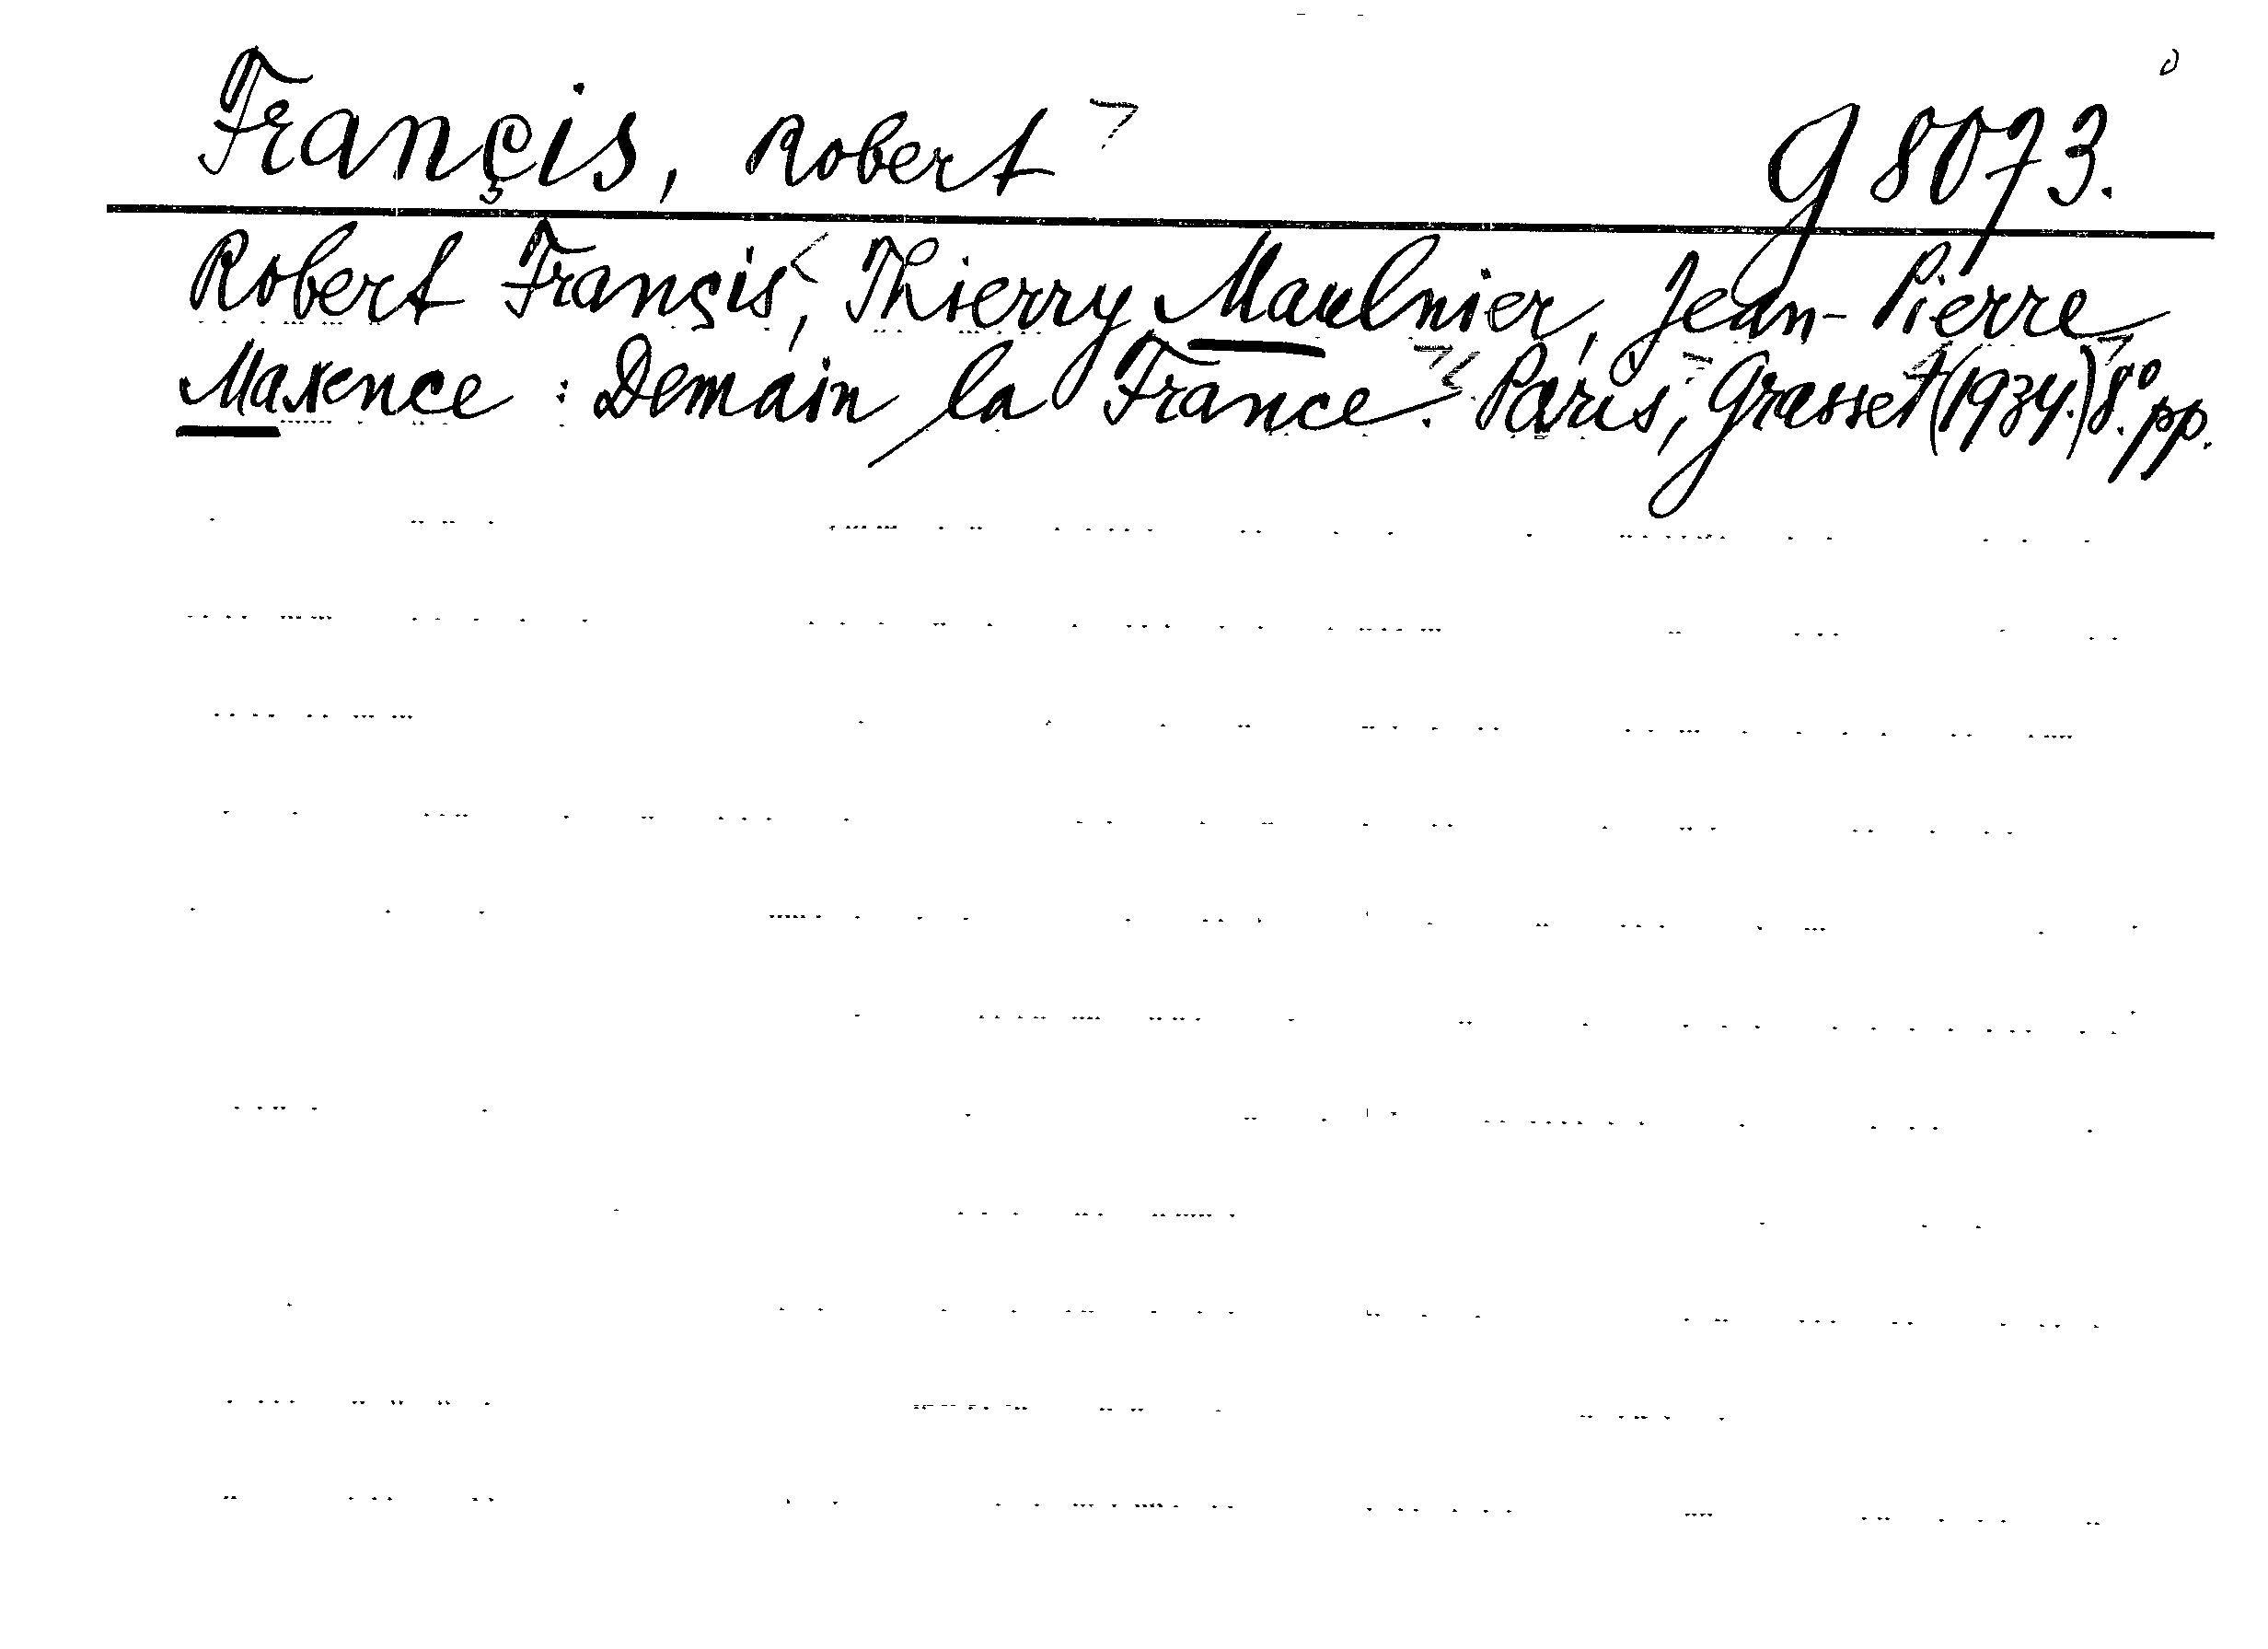 Françis, Robert g 8073.
Robert Françis, Thierry Maulnier, Jean-Pierre
Maxence : Demain la France. Paris, Grasset (1934.) 8°. pp.